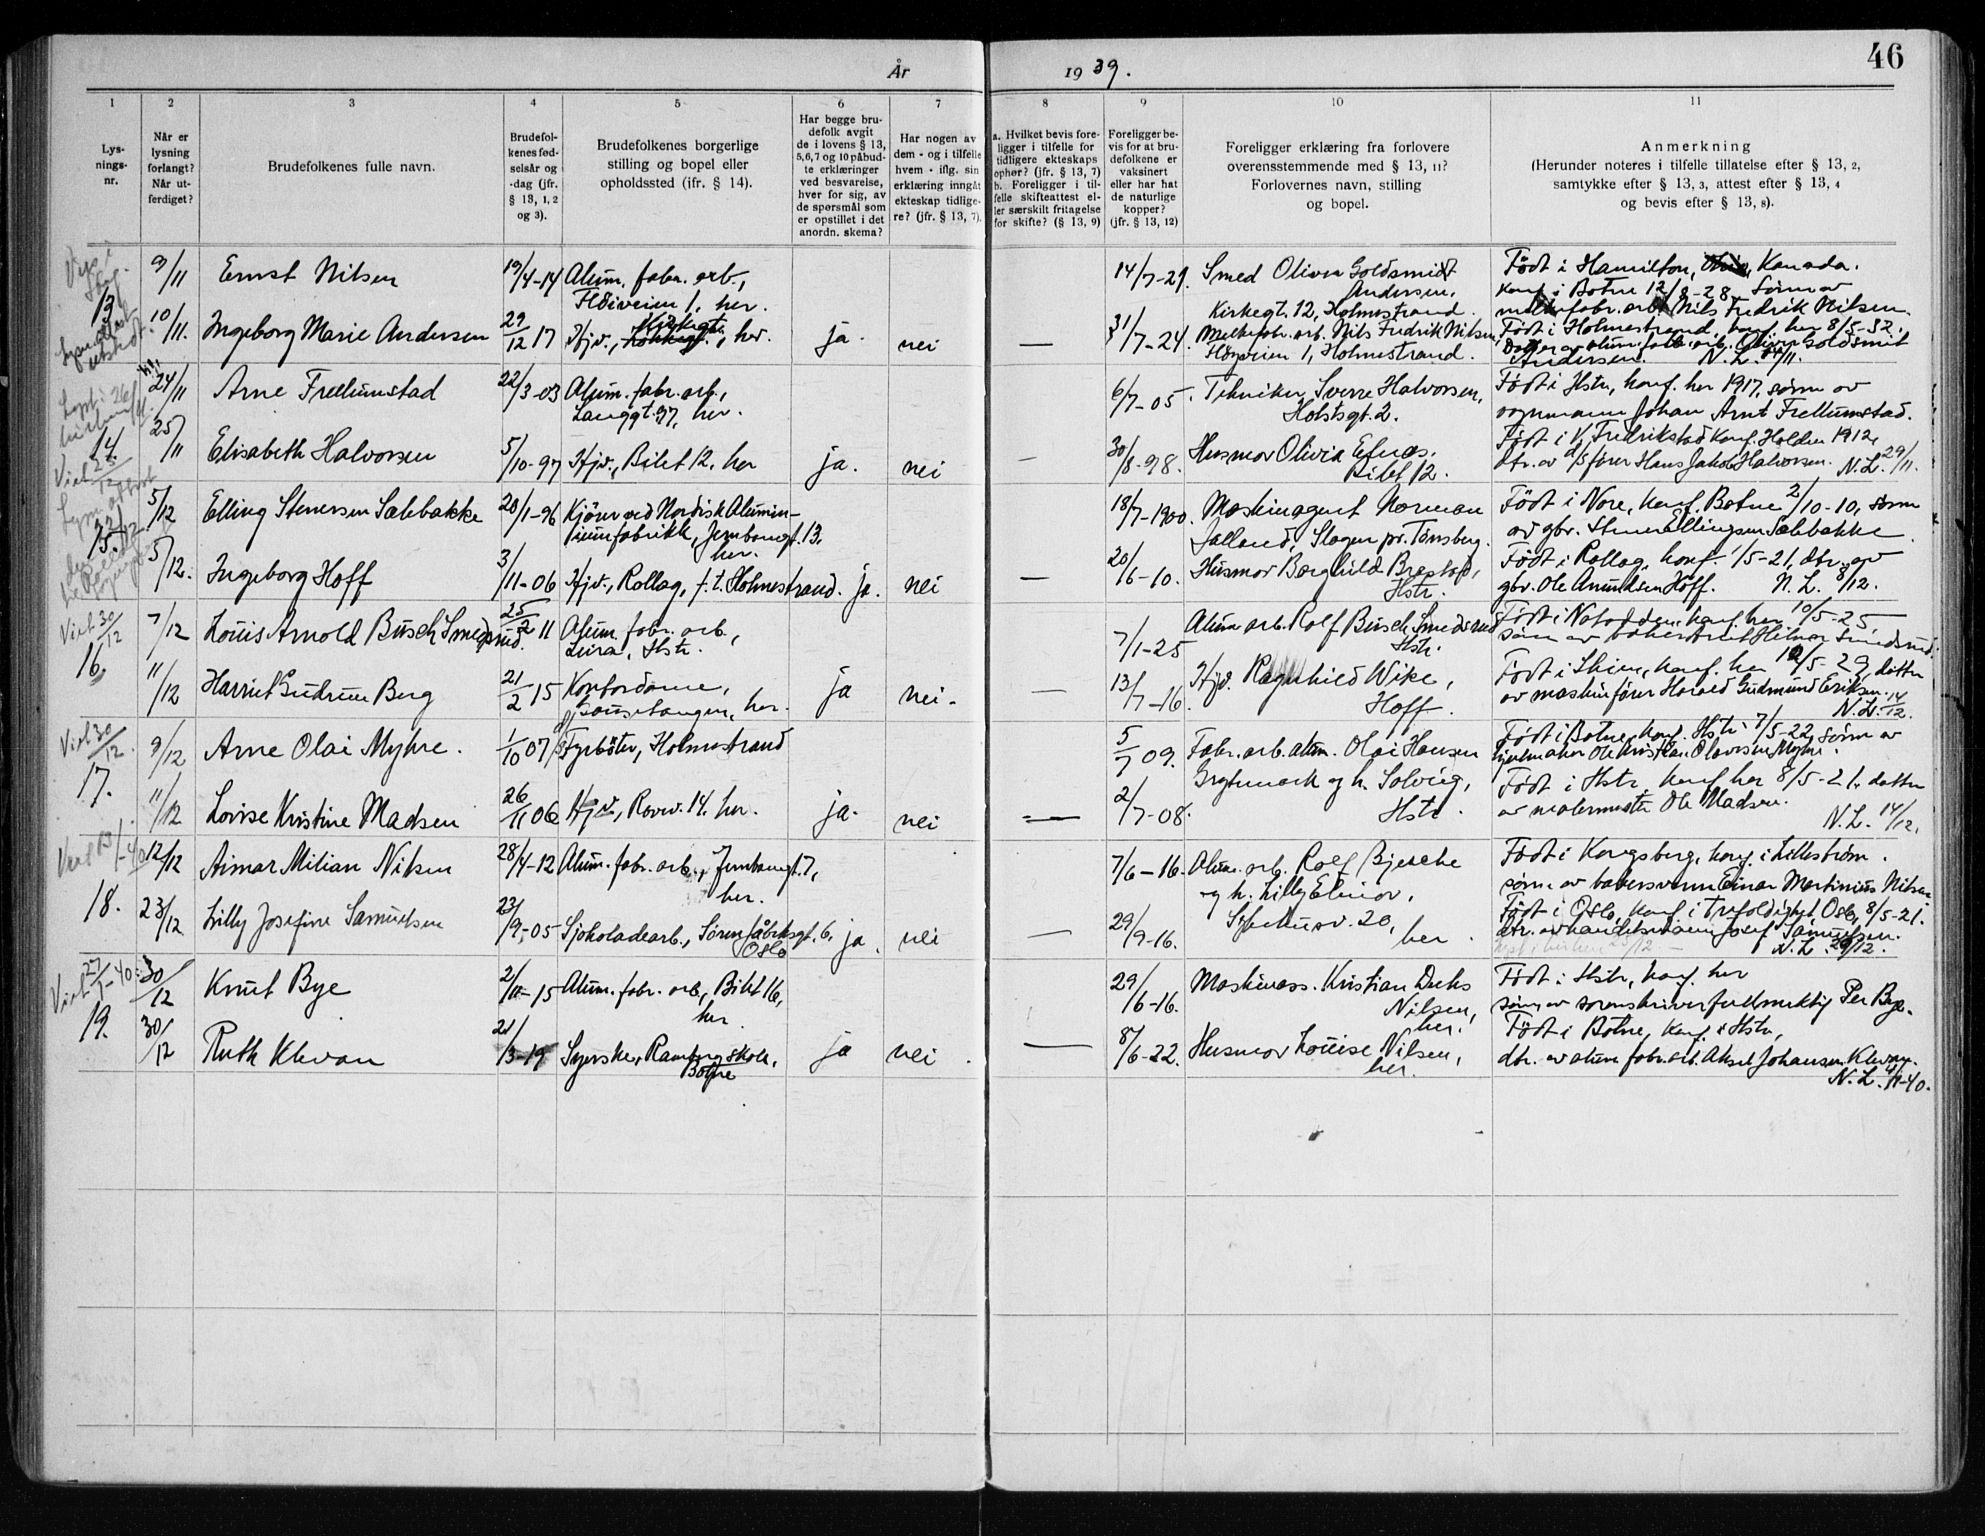 År 1939.
46
1 2 3 4 5 6 7 8 9 10 11
Lys-
nings-
nr.
Når er
lysning
forlangt?
Når ut-
ferdiget?
Brudefolkenes fulle navn.
Brudefol-
kenes fød-
selsår og
-dag (jfr.
§ 13, 1, 2
og 3).
Brudefolkenes borgerlige
stilling og bopel eller
opholdssted (ifr. § 14).
Har begge bru-
defolk avgit
de i lovens § 13,
5,6,7 og 10 påbud-
te erklæringer
ved besvarelse,
hver for sig, av
de spørsmål som
er opstillet i det
anordn. skema?
Har nogen av
dem - og i tilfelle
hvem - iflg. sin
erklæring inngåt
ekteskap tidlige-
re? (jfr. § 13, 7).
a. Hvilket bevis fore-
ligger i tilfelle for
tidligere ekteskaps
ophør? (jfr. § 13, 7)
b. Foreligger i til-
felle skifteattest el-
ler særskilt fritagelse
for skifte? (§ 13, 9)
Foreligger be-
vis for at bru-
defolkene er
vaksinert
eller har hat
de naturlige
kopper?
(jfr. § 13, 12)
Foreligger erklæring fra forlovere
overensstemmende med § 13, 11?
Forlovernes navn, stilling
og bopel.
Anmerkning
(Herunder noteres i tilfelle tillatelse efter § 13, 2,
samtykke efter § 13, 3, attest efter § 13, 4
og bevis efter § 13, 8).
13
9/11 Ernst Nilsen 19/4-14 Alum. fabr. arb.,
Fløiveien 1, her.
14/7-21. Smed Oliver Goldsmidt
Andersen,
Kirkegt. 12, Holmestrand.
Født i Hamilton, Kanada.
Konf. i Botne 12/8-28. Sønn av
fabr. arb. Nils Fredrik Nilsen.
10/11. Ingeborg Marie Andersen 29/12 17 Hjv., Kirkegt., her. ja. nei —
31/7-24. Melkefabr. arb. Nils Fredrik Nilsen,
1, Holmestrand.
Født i Holmestrand, konf. her 8/5-32.
Datter av alum. fabr. arb. Oliver Goldsmit
Andersen. N.L. 14/11.
14.
24/11 Arne Frellumstad 22/3-03 Alum. fabr. arb.,
Langgt. 97, her.
6/7-05. Tekniker Sverre Halvorsen,
Holstsgt. 2.
Født i Hstr, konf. her 1917, sønn av
vognmann Johan Arnt Frellumstad.
25/11 Elisabeth Halvorsen 5/10-97 Hjv., Bilet 12, her ja. nei —
30/8-98. Husmor Olivia Efnes,
Bilet 12.
Født i V. Fredrikstad konf. Halden 1912,
dtr. av d/s fører Hans Jakob Halvorsen. N.L. 29/11.
15.
5/12 Elling Stenersen Sælebakke 20/1-96 Kjører ved Nordisk Alumin-
iumfabrikk, Jernbanegt. 13,
her.
18/7-1900. Maskinagent Norman
Jalland, Slagen pr. Tønsberg.
Født i Nore, konf. Botne 2/10-10, sønn
av gbr. Stener Ellingsen Sælebakke.
5/12. Ingeborg Hoff 3/11-06 Hjv., Rollag, f.t. Holmestrand. ja. nei —
20/6-10. Husmor Borghild
Hstr.
Født i Rollag, konf. 1/5-21, dtr. av
gbr. Ole Amundsen Hoff. N.L. 8/12.
Viet 30/12
16.
7/12 Louis Arnold Busch Smedsrud. 25/2 11 Alum. fabr. arb.,
Leira, Hstr.
7/1-25 Alum arb. Rolf Busch Smedsrud
Hstr.
Født i Notodden, konf. her 10/5-25
sønn av baker Arnt Hilmar Smedsrud.
11/12 Harriet Gudrun Berg 21/2 15 Kontordame,
her. ja nei. —
13/7-16. Hjv. Ragnhild Wike,
Hoff.
Født i Skien, konf. her 12/5-29, datter
av maskinfører Harald Gudmund Eriksen.
N.L. 14/12.
Viet 30/12
17.
9/12 Arne Olai Myhre. 1/10 07 Fyrbøter, Holmestrand
5/7 09. Fabr. arb. alum. Olai Hansen
Grythmark og h. Solveig,
Hstr.
Født i Botne, konf. Hstr 7/5-22, sønn av
Ole Kristian Olavesen Myhre.
11/12 Lovise Kristine Madsen 26/11 06 Hjv., Rovev. 14, her. ja. nei —
2/7-08.
Født i Hstr, konf. her 8/5-21, datter
av malermester Ole Madsen.
N.L. 14/12.
18.
12/12 Aimar Milian Nilsen 28/4-12 Alum. fabr. arb., Jernbanegt. 7,
her.
7/6-16. Alum. arb. Rolf Bjerche
og h. Lilly Elinor,
20,
her.
Født i Kongsberg, konf. i Lillestrøm.
sønn av bakersvenn Einar Martinius Nilsen.
23/12 Lilly Josefine Samuelsen 23/9-05 Sjokoladearb., Sørenfabriksgt. 6,
Oslo ja. nei —
29/9-16.
Født i Oslo, konf. i Trefoldighet, Oslo, 8/5-21.
dtr. av handelsmann Josef Samuelsen.
N.L. 29/12.
Viet 27/1-40.
19.
30/12 Knut Bye 2/11-15 Alum. fabr. arb., Bilet 16,
her.
29/6-16. Maskinass. Kristian
Nilsen,
her.
Født i Hstr, konf. her
sønn av sorenskriverfullmektig Per Bye.
30/12 Ruth Klevan 21/3-19 Syerske, Ramberg skole,
Botne ja nei. —
8/6-22. Husmor Louise Nilsen,
her.
Født i Botne, konf. i Hstr,
dtr. av alum fabr. arb. Aksel Johansen Klevan.
N.L. 4/1-40.